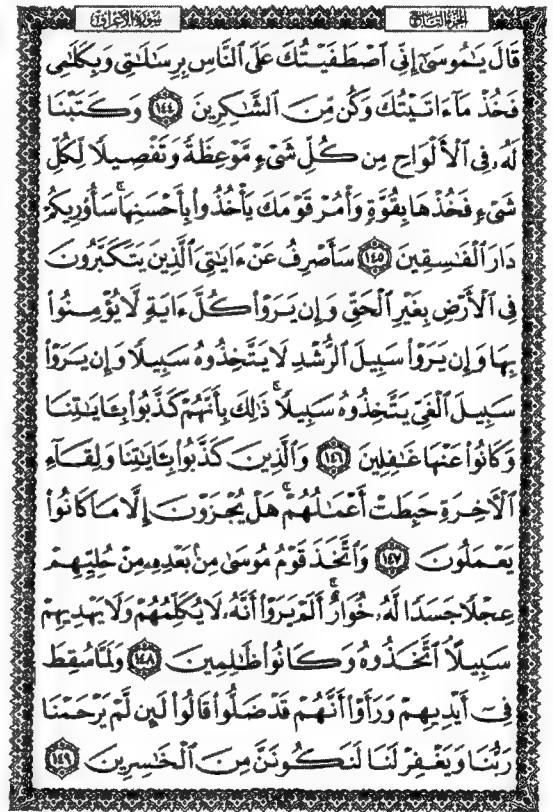 الجزء التاسع
سورة الأعراف
قَالَ يَٰمُوسَىٰٓ إِنِّى ٱصْطَفَيْتُكَ عَلَى ٱلنَّاسِ بِرِسَٰلَٰتِى وَبِكَلَٰمِى
فَخُذْ مَآ ءَاتَيْتُكَ وَكُن مِّنَ ٱلشَّٰكِرِينَ ١٤٤ وَكَتَبْنَا
لَهُۥ فِى ٱلْأَلْوَاحِ مِن كُلِّ شَىْءٍ مَّوْعِظَةً وَتَفْصِيلًا لِّكُلِّ
شَىْءٍ فَخُذْهَا بِقُوَّةٍ وَأْمُرْ قَوْمَكَ يَأْخُذُوا۟ بِأَحْسَنِهَا ۚ سَأُو۟رِيكُمْ
دَارَ ٱلْفَٰسِقِينَ ١٤٥ سَأَصْرِفُ عَنْ ءَايَٰتِىَ ٱلَّذِينَ يَتَكَبَّرُونَ
فِى ٱلْأَرْضِ بِغَيْرِ ٱلْحَقِّ وَإِن يَرَوْا۟ كُلَّ ءَايَةٍ لَّا يُؤْمِنُوا۟
بِهَا وَإِن يَرَوْا۟ سَبِيلَ ٱلرُّشْدِ لَا يَتَّخِذُوهُ سَبِيلًا وَإِن يَرَوْا۟
سَبِيلَ ٱلْغَىِّ يَتَّخِذُوهُ سَبِيلًا ۚ ذَٰلِكَ بِأَنَّهُمْ كَذَّبُوا۟ بِـَٔايَٰتِنَا
وَكَانُوا۟ عَنْهَا غَٰفِلِينَ ١٤٦ وَٱلَّذِينَ كَذَّبُوا۟ بِـَٔايَٰتِنَا وَلِقَآءِ
ٱلْـَٔاخِرَةِ حَبِطَتْ أَعْمَٰلُهُمْ ۚ هَلْ يُجْزَوْنَ إِلَّا مَا كَانُوا۟
يَعْمَلُونَ ١٤٧ وَٱتَّخَذَ قَوْمُ مُوسَىٰ مِنۢ بَعْدِهِۦ مِنْ حُلِيِّهِمْ
عِجْلًا جَسَدًا لَّهُۥ خُوَارٌ ۚ أَلَمْ يَرَوْا۟ أَنَّهُۥ لَا يُكَلِّمُهُمْ وَلَا يَهْدِيهِمْ
سَبِيلًا ۘ ٱتَّخَذُوهُ وَكَانُوا۟ ظَٰلِمِينَ ١٤٨ وَلَمَّا سُقِطَ
فِىٓ أَيْدِيهِمْ وَرَأَوْا۟ أَنَّهُمْ قَدْ ضَلُّوا۟ قَالُوا۟ لَئِن لَّمْ يَرْحَمْنَا
رَبُّنَا وَيَغْفِرْ لَنَا لَنَكُونَنَّ مِنَ ٱلْخَٰسِرِينَ ١٤٩